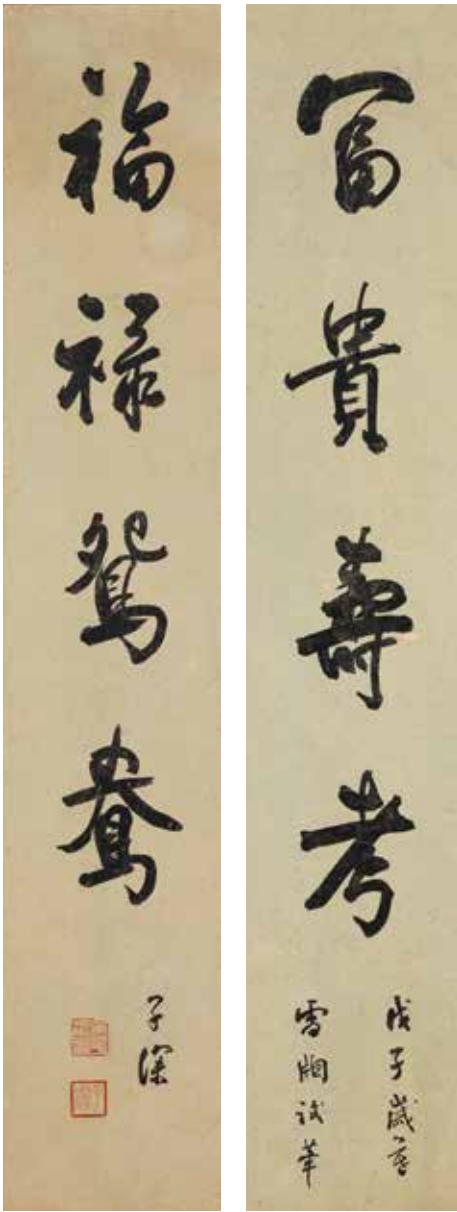 冨貴壽考
戊子歲暮
雪牕試筆
福禄鴛鴦
子深